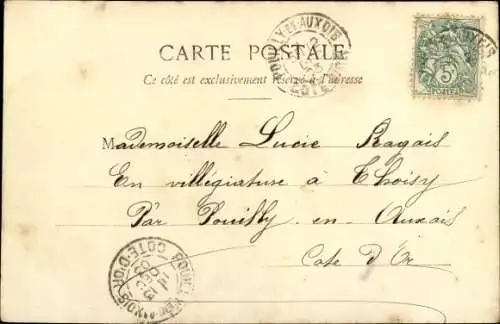 CARTE POSTALE
Ce côté est exclusivement réservé à l'adresse
POUILLY-EN-AUXOIS
CÔTE
5c
POSTES
Mademoiselle Lucie Ragais
En villégiature à Thoisy
Par Pouilly-en-Auxois
Côte d'Or
COTE-D'OR